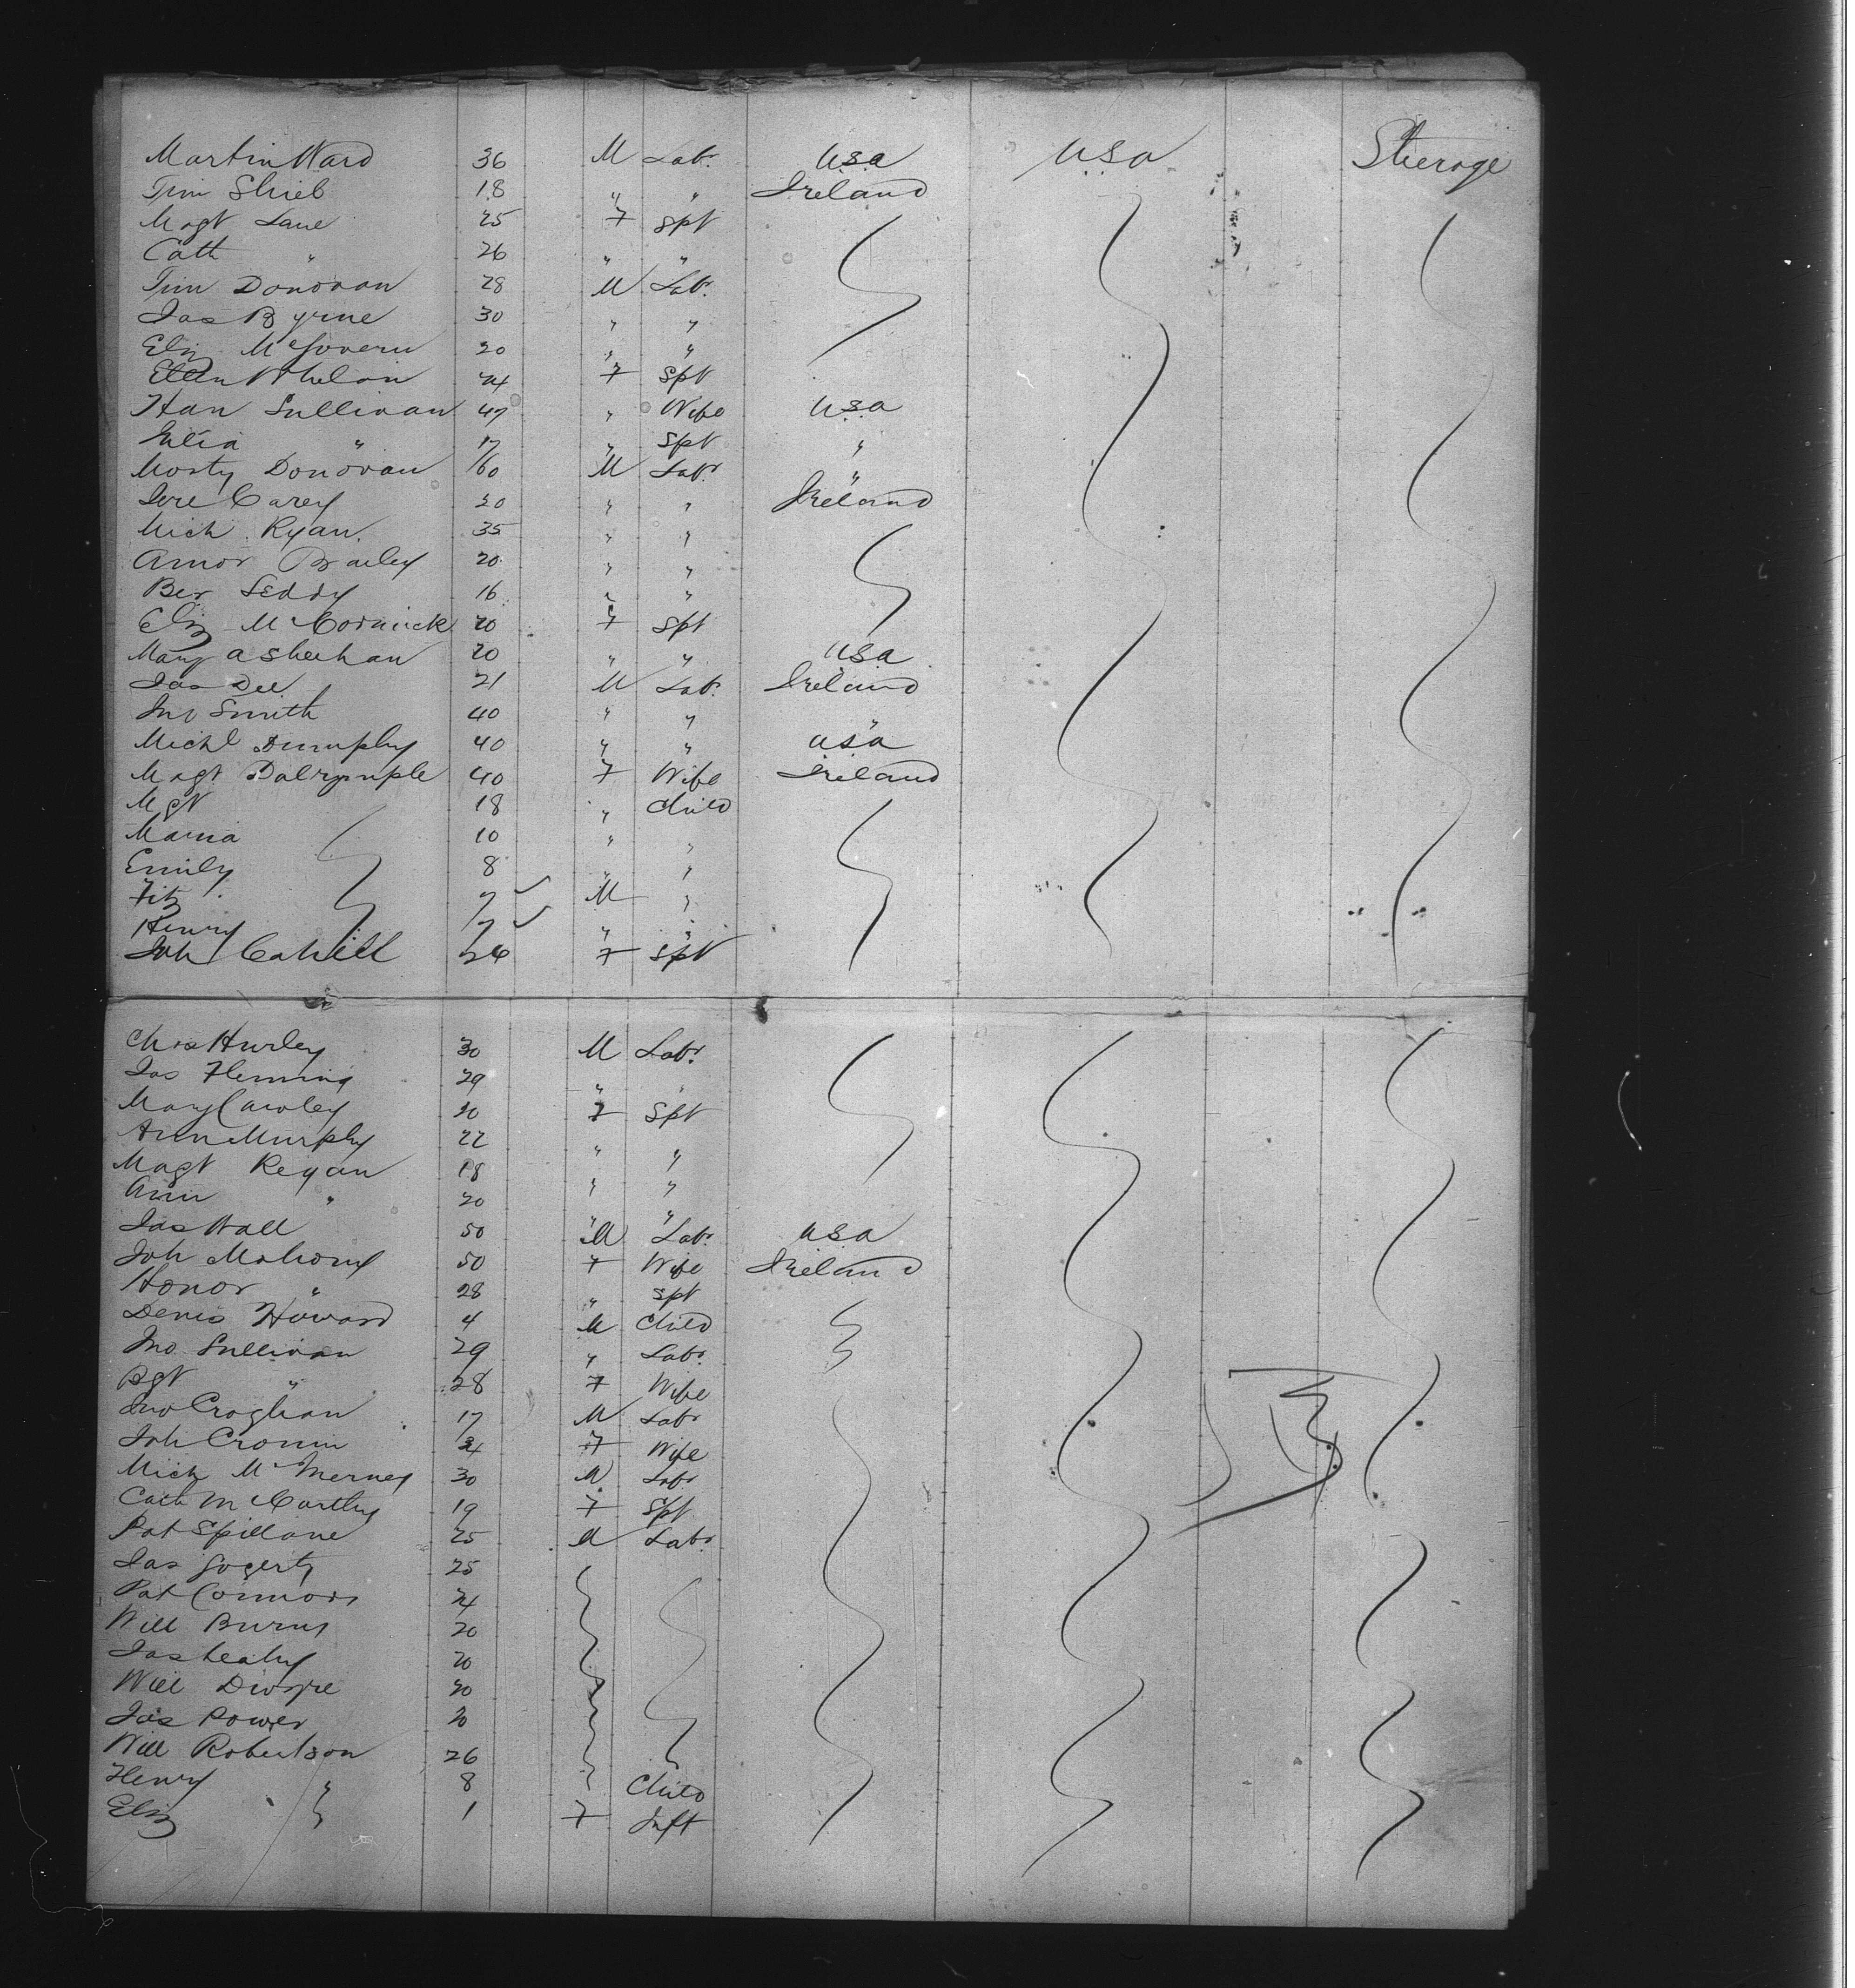 Martin Ward 36 M Labr USA USA Steerage
Tim Shieb 18 " " Ireland
Magt Lane 25 F Spt
Cath " 26 " "
Tim Donovan 28 M Labr
Jas Byrne 30 " "
Eliz McGovern 20 " "
Ellen Whelan 24 F Spt
Han Sullivan 47 " Wife USA
Julia " 17 " Spt "
Morty Donovan 60 M Labr "
Jere Carey 20 " " Ireland
Mich Ryan 35 " "
Amor Bailey 20 " "
Ber Leddy 16 " "
Eliz McCormick 20 F Spt
Mary A Sheehan 20 " " USA
Jas Dee 21 M Labr Ireland
Jno Smith 40 " " "
Michl Dumphy 40 " " USA
Magt Dalrymple 40 F Wife Ireland
Mgt 18 " Child
Maria 10 " "
Emily 8 " "
Fitz 7 M "
Henry 7 " "
Joh Cahill 26 F Spt
Chas Hurley 30 M Labr
Jas Fleming 29 " "
Mary Cawley 20 F Spt
Ann Murphy 22 " "
Magt Regan 18 " "
Ann " 20 " "
Jas Wall 50 M Labr USA
Joh Mahony 50 F Wife Ireland
Honor " 28 " Spt
Denis Howard 4 M Child
Jno Sullivan 29 " Labr
Bgt " 28 F Wife
Jno Croghan 17 M Labr
Joh Cronin 24 F Wife
Mich McInerney 30 M Labr
Cath McCarthy 19 F Spt
Pat Spillane 25 M Labr
Jas Gogerty 25
Pat Connors 24
Will Burns 20
Jas Leahy 20
Will Dwyre 20
Jas Power 20
Will Robertson 26
Henry " 8 Child
Eliz 1 F Inft